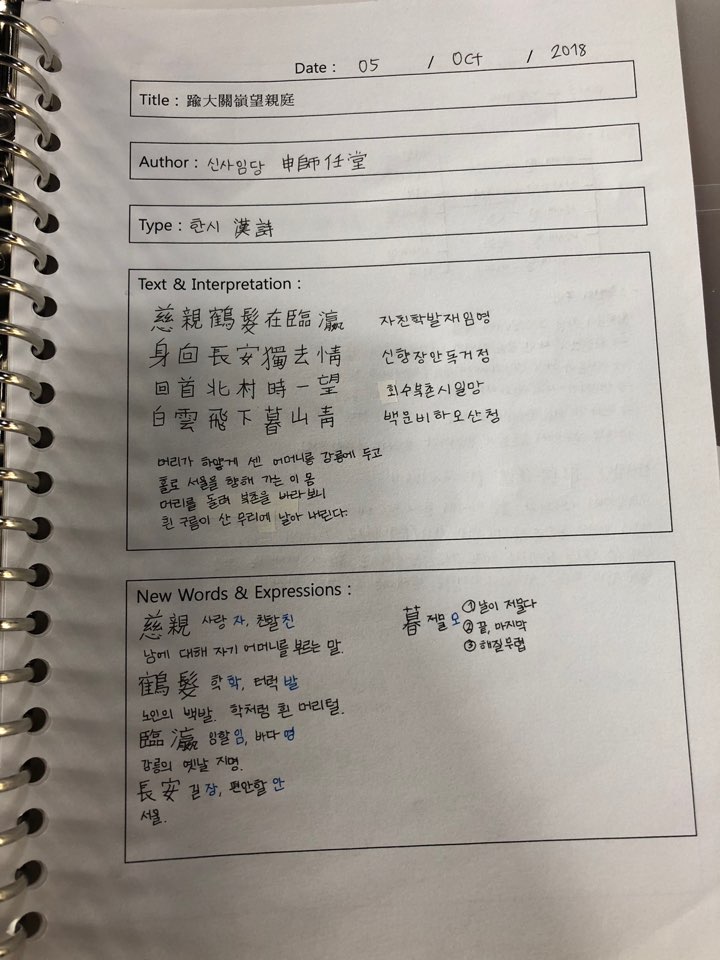 Date : 05 / Oct / 2018
Title : 踰大關嶺望親庭
Author : 신사임당 申師任堂
Type : 한시 漢詩
Text & Interpretation :
慈親鶴髮在臨瀛 자친학발재임영
身向長安獨去情 신향장안독거정
回首北村時一望 회수북촌시일망
白雲飛下暮山靑 백운비하모산청
머리가 하얗게 센 어머니를 강릉에 두고
홀로 서울을 향해 가는 이 몸
머리를 돌려 북촌을 바라보니
흰 구름이 산 무리에 날아 내린다.
New Words & Expressions :
慈親 사랑 자, 친할 친
남에 대해 자기 어머니를 부르는 말.
鶴髮 학 학, 터럭 발
노인의 백발. 학처럼 흰 머리털.
臨瀛 임할 임, 바다 영
강릉의 옛날 지명.
長安 길 장, 편안할 안
서울.
暮 저물 모 ① 날이 저물다
② 끝, 마지막
③ 해질 무렵